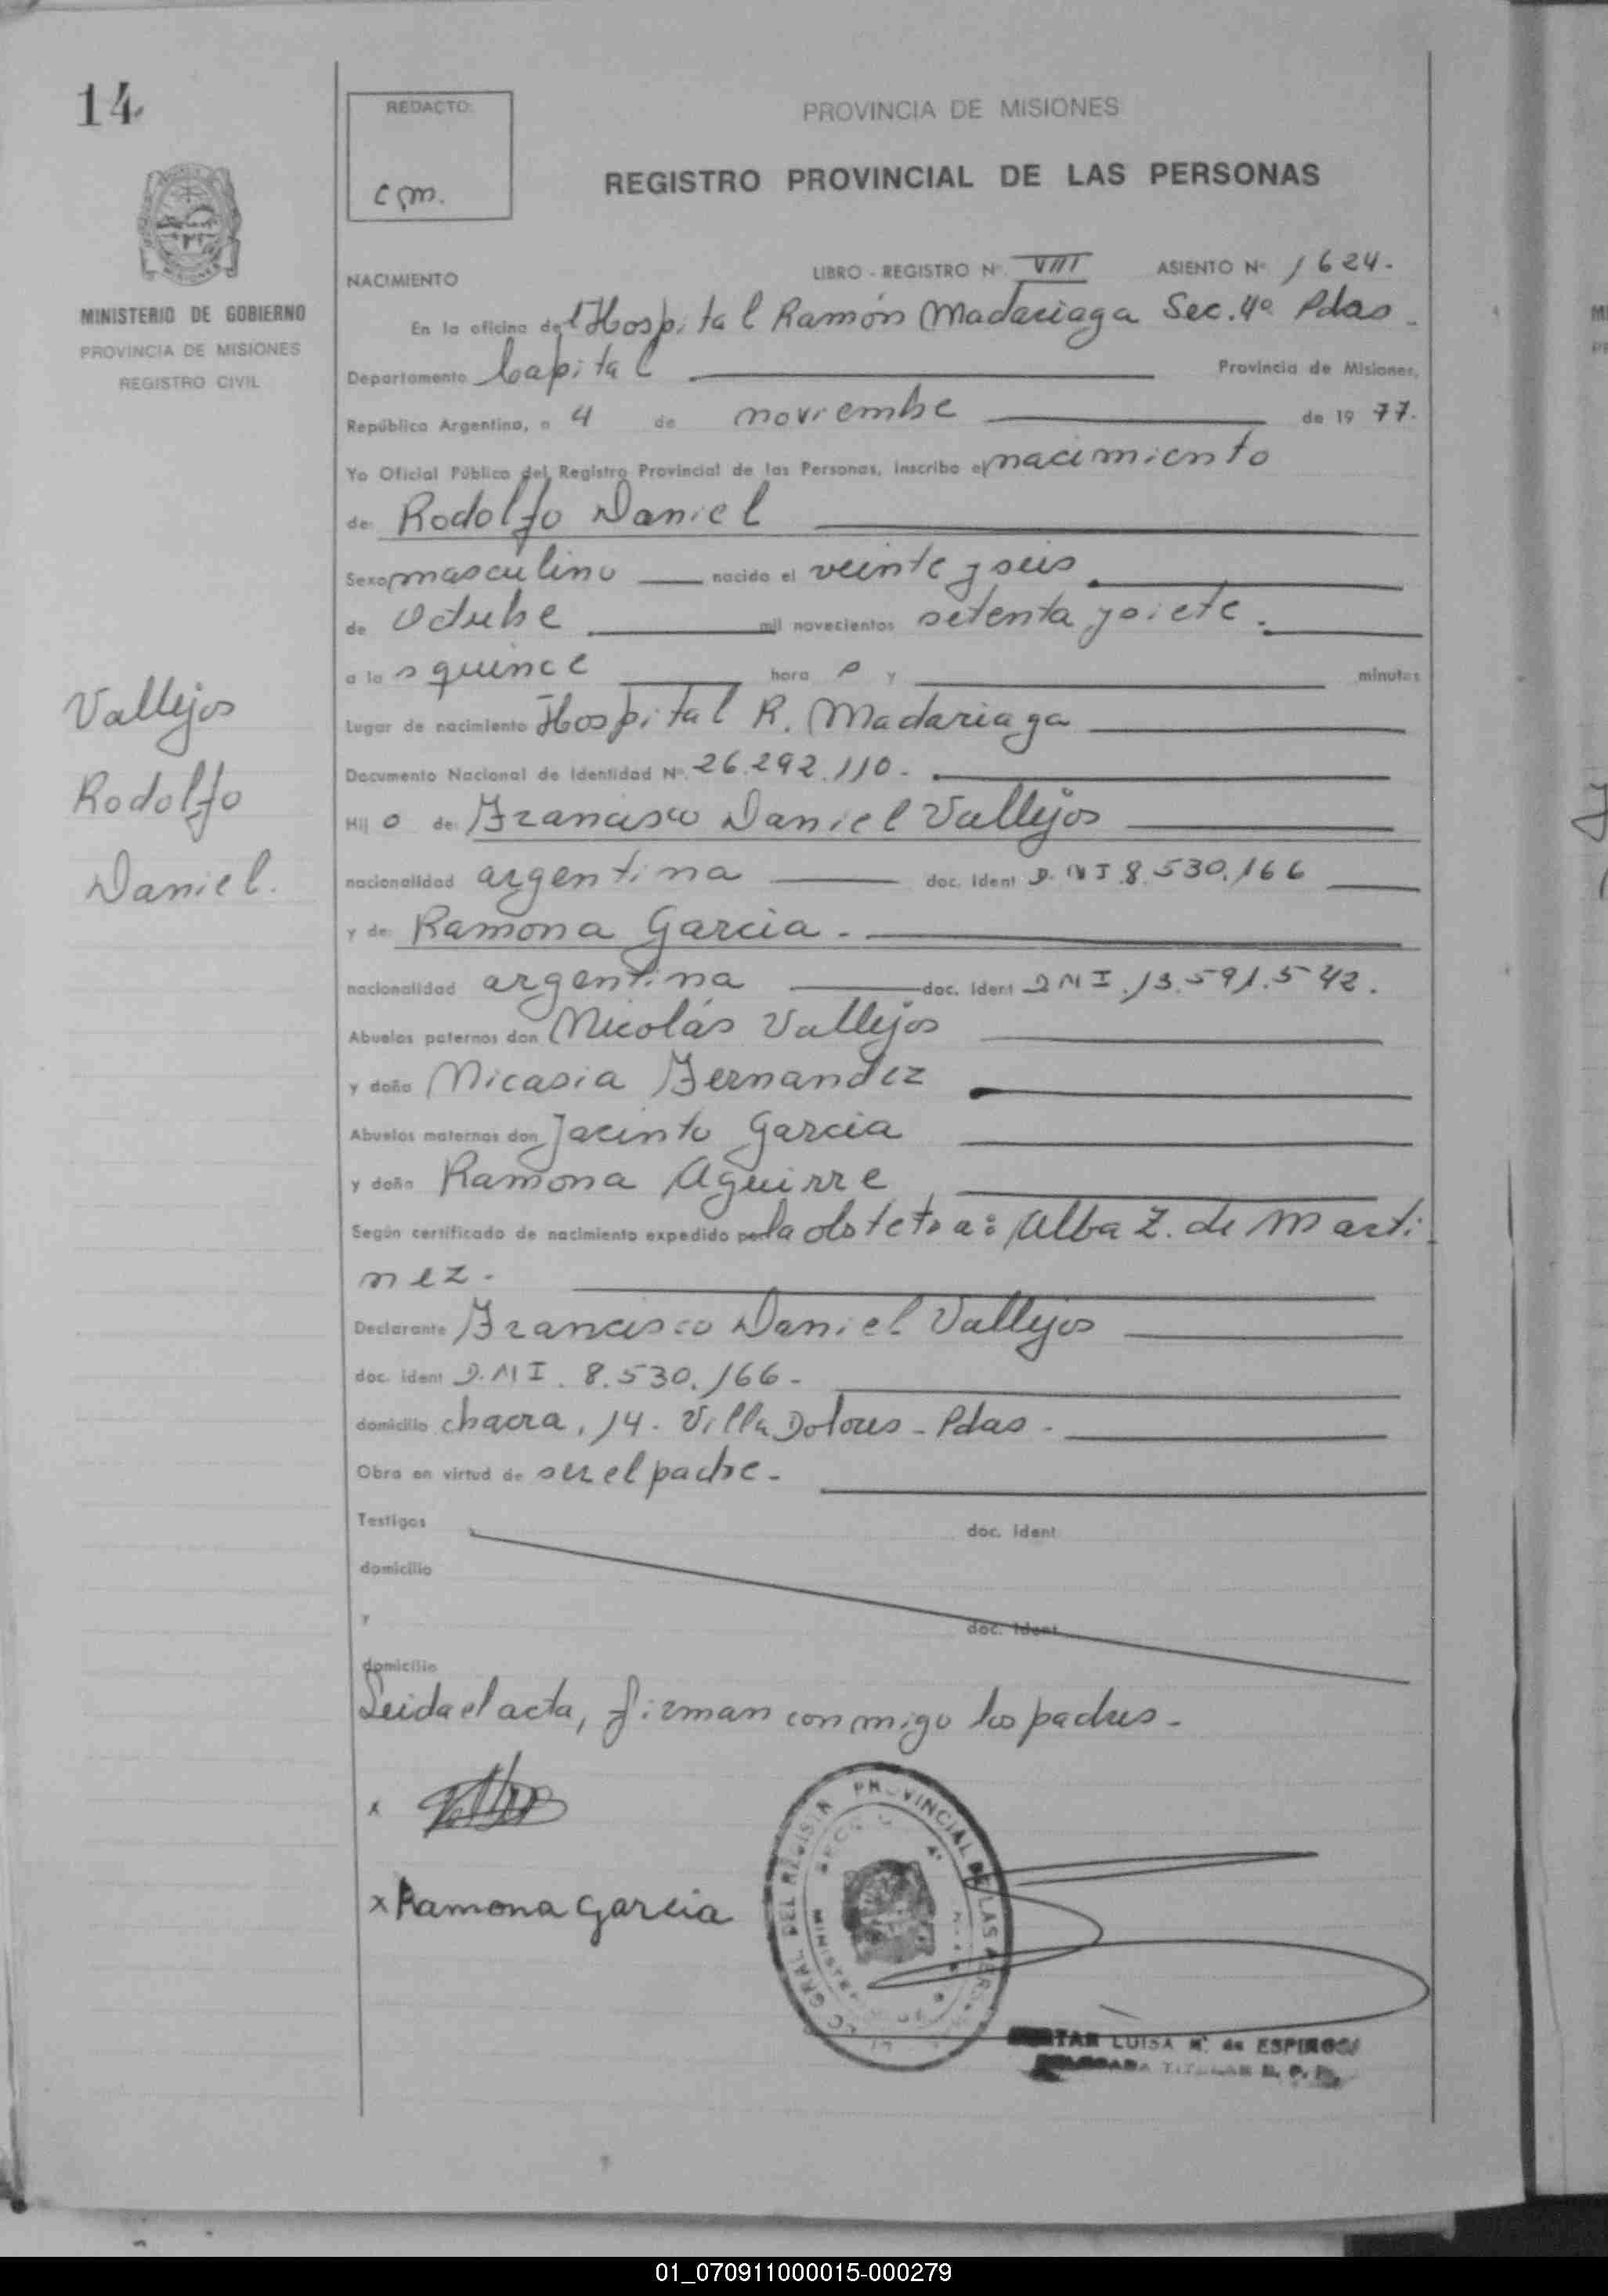 14
REDACTO:
cm.
PROVINCIA DE MISIONES
REGISTRO PROVINCIAL DE LAS PERSONAS
MINISTERIO DE GOBIERNO
PROVINCIA DE MISIONES
REGISTRO CIVIL
NACIMIENTO LIBRO - REGISTRO Nº. VIII ASIENTO Nº 1624.-
En la oficina del Hospital Ramón Madariaga Sec. 4ª Pdas -
Departamento Capital Provincia de Misiones,
República Argentina, a 4 de noviembre de 19 77.
Yo Oficial Público del Registro Provincial de las Personas, inscribo el nacimiento
de: Rodolfo Daniel
Sexo masculino nacido el veinte y seis
de Octubre mil novecientos setenta y siete.
a las quince hora s y minutos
Lugar de nacimiento Hospital R. Madariaga
Documento Nacional de Identidad Nº. 26.292.110.-
Hij o de: Francisco Daniel Vallejos
nacionalidad argentina doc. ident D.N.I 8.530.166
y de: Ramona Garcia.-
nacionalidad argentina doc. ident D N I. 13.591.542.
Abuelos paternos don Nicolás Vallejos
y doña Nicasia Fernandez
Abuelos maternos don Jacinto Garcia
y doña Ramona Aguirre
Según certificado de nacimiento expedido por la obstetra: Alba Z. de Marti-
nez.-
Declarante Francisco Daniel Vallejos
doc. ident D.N I. 8.530.166-
domicilio chacra, 14. Villa Dolores - Pdas.-
Obra en virtud de ser el padre.-
Testigos doc. ident
domicilio
y doc. ident
domicilio
Leida el acta, firman conmigo los padres.-
x
x Ramona Garcia
Vallejos
Rodolfo
Daniel.
GRAL DEL REGISTR PROVINCIAL DE LAS PERS
LUISA N. de ESPINOSA
TITULAR R. P. P.
01_070911000015-000279